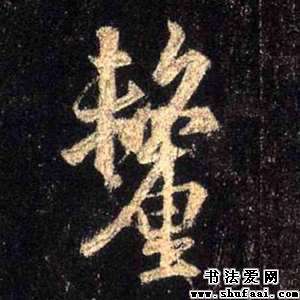 釐
书法爱网
www.shufaai.com